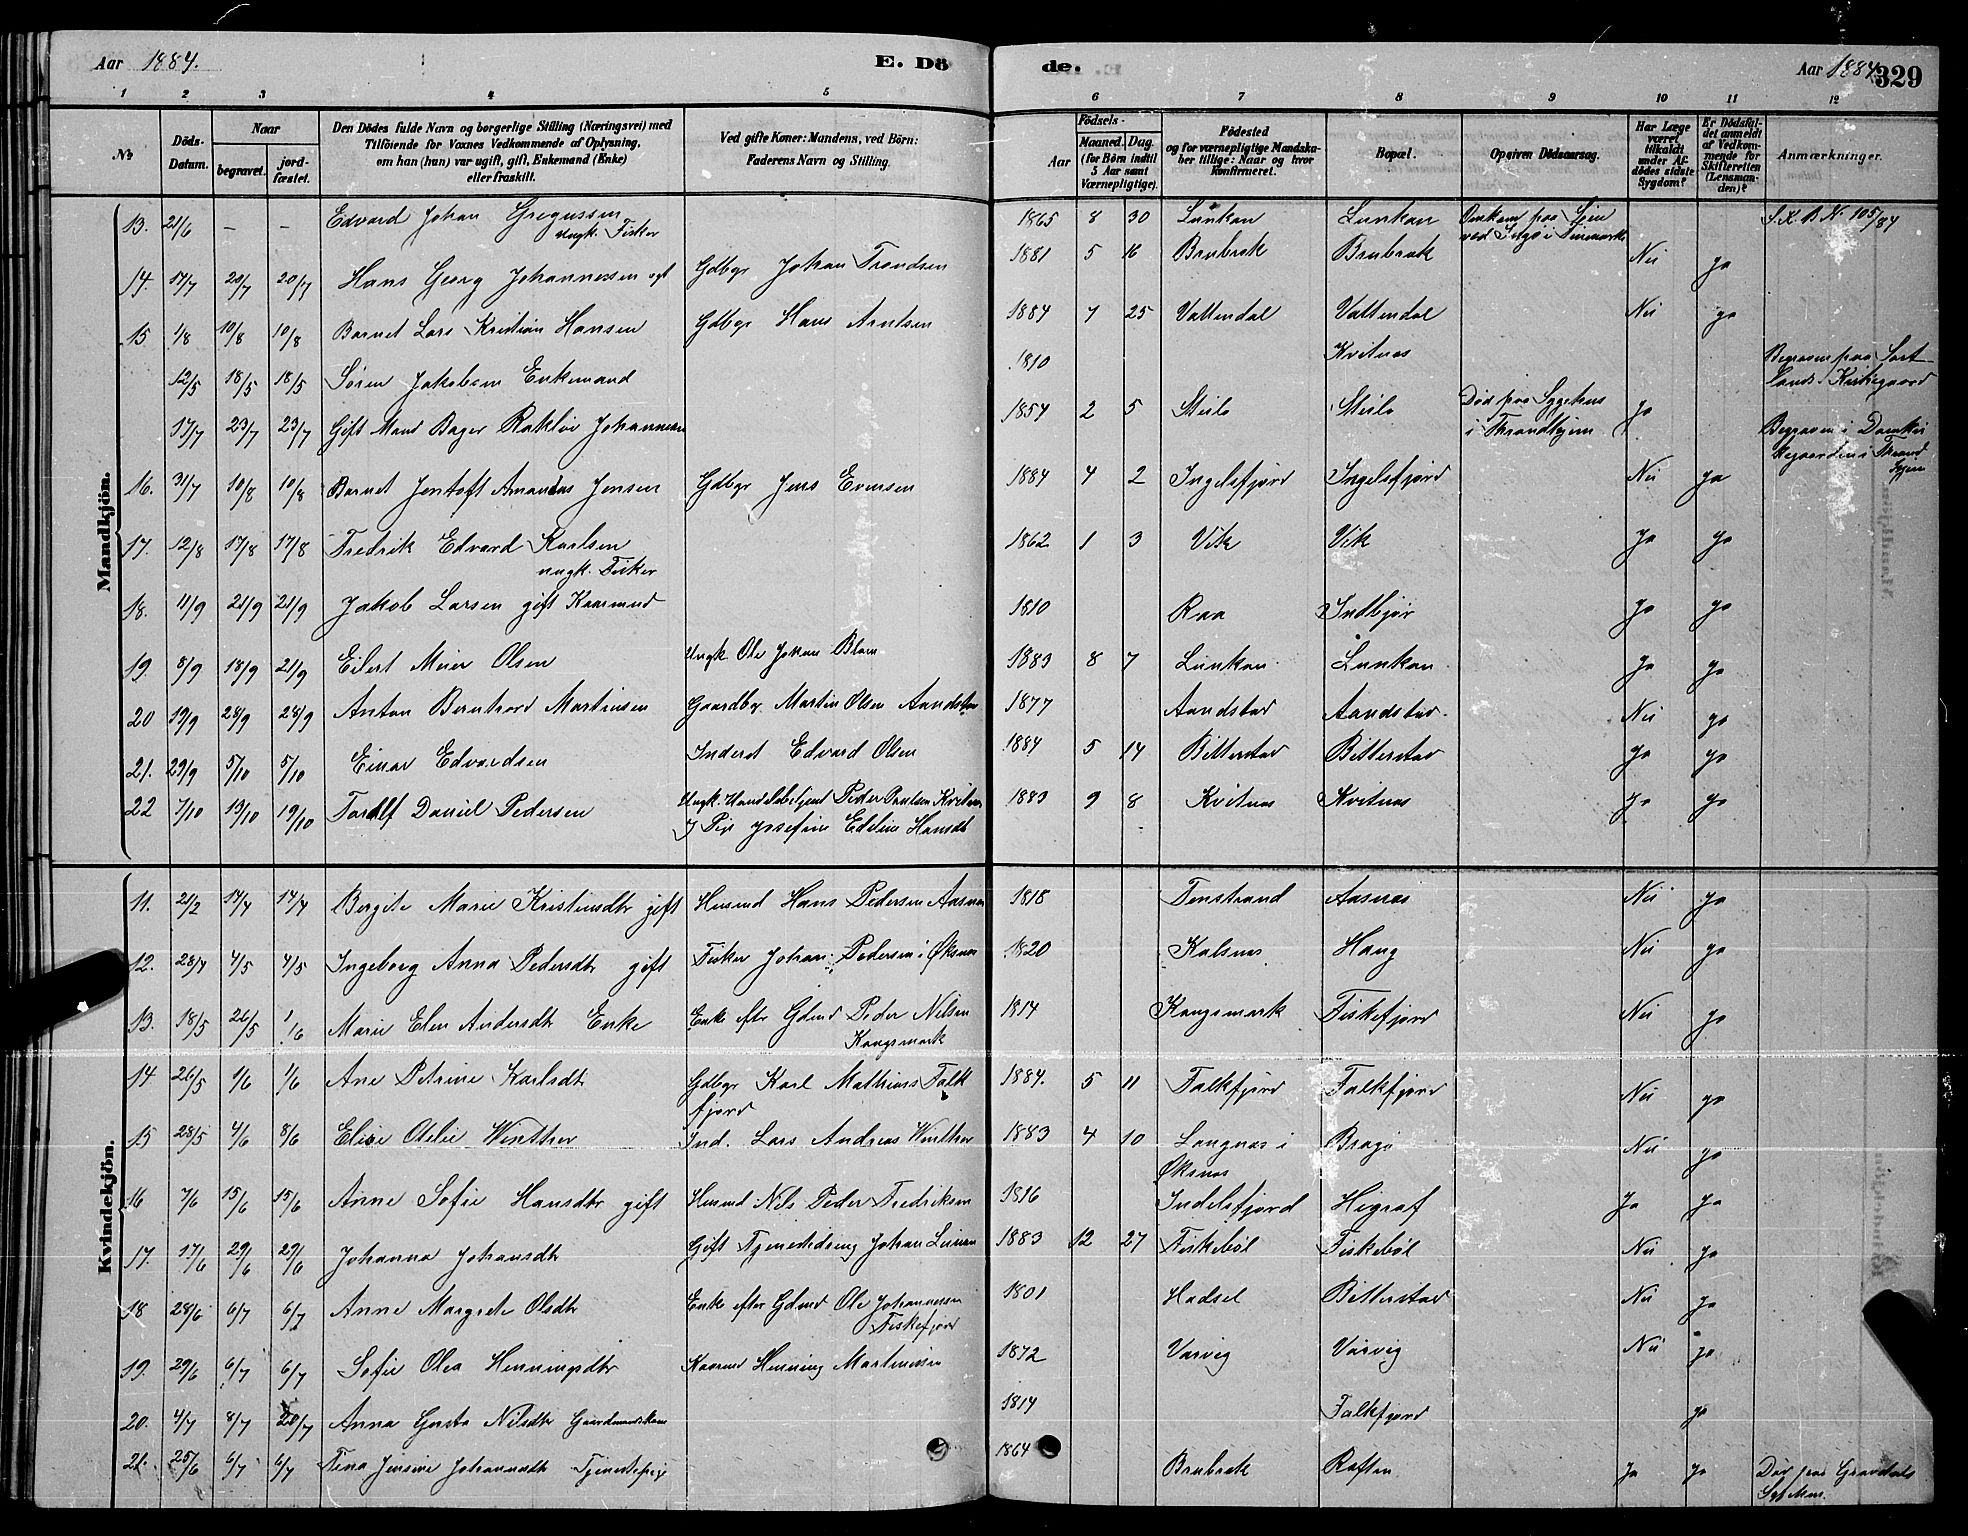 Aar 1884. E. Döde. Aar 1884 329
1 2 3 4 5 6 7 8 9 10 11 12
No. Döds-Datum. Naar begravet. jord-fæstet. Den Dödes fulde Navn og borgerlige Stilling (Næringsvei) med Tilföiende for Voxnes Vedkommende af Oplysning, om han (hun) var ugift, gift, Enkemand (Enke) eller fraskilt. Ved gifte Koner: Mandens, ved Börn: Faderens Navn og Stilling. Födsels- Aar Maaned. Dag. (for Börn indtil 5 Aar samt Værnepligtige). Födested og for værnepligtige Mandskaber tillige: Naar og hvor konfirmeret. Bopæl. Opgiven Dödsaarsag. Har Læge været tilkaldt under Afdödes sidste Sygdom? Er Dödsfaldet anmeldt af Vedkommende for Skifteretten (Lensmanden)? Anmærkninger.
Mandkjön.
13. 21/6 – – Edvard Johan Gregussen ungk. Fisker 1865 8 30 Lunkan Lunkan Omkom paa Sjøen ved i S.K.B. No 105/84
14. 17/7 20/7 20/7 Hans Georg Johannessen Gdbgr Johan Trondsen 1881 5 16 Brubrek Brubrek Nei ja
15 1/8 10/8 10/8 Barnet Lars Kristian Hansen Gdbgr Hans Arntsen 1884 7 25 Vattendal Vattendal Nei ja
12/5 18/5 18/5 Sören Jakobsen Enkemand 1810 Kvitnæs Begraven paa Sortlands Kirkegaard
17/7 23/7 23/7 Gift Mand Bager Johannesen 1854 2 5 Steilo Steilo Död paa Sygehus i Throndhjem ja Begraven i Domkirkegaarden i Thrond hjem
16. 31/7 10/8 10/8 Barnet Jentoft Amandus Jensen Gdbgr Jens Evensen 1884 4 2 Ingelsfjord Ingelsfjord Nei ja
17. 12/8 17/8 17/8 Fredrik Edvard Karlsen ungk. Fisker 1862 1 3 Vik Vik ja ja
18. 11/9 21/9 21/9 Jakob Larsen gift Kaarmand 1810 Raa Indbjør ja ja
19. 8/9 18/9 21/9 Eilert Meier Olsen Ungk Ole Johan Blom 1883 8 7 Lunkan Lunkan ja ja
20 19/9 28/9 28/9 Anton Berntzord Martinsen Gaardbgr. Martin Olsen Aandstad 1877 Aandstad Aandstad. Nei ja
21. 29/9 5/10 5/10 Einar Edvardsen Inderst Edvard Olsen 1884 5 14 Bitterstad Bitterstad ja ja
22 7/10 19/10 19/10 Toralf Daniel Pedersen Ungk. Handelsbetjent Peder Paulsen Kvitnæs 1883 9 8 Kvitnæs Kvitnæs ja ja
Pige Josefine Edeline Hansdt
Kvindekjön.
11. 21/2 14/4 14/4 Bergite Marie Kristensdtr gift Husmd Hans Pedersen Aasnæs 1818 Tenstrand Aasnæs Nei ja
12. 28/4 4/5 4/5 Ingeborg Anna Pedersdtr gift Fisker Johan Pedersen i Øksnæs 1820 Kalsnæs Haug Nei ja
13. 18/5 26/5 1/6 Marie Elen Andersdtr Enke Enke efter Gdmd Peder Nilsen Kongsmark 1814 Kongsmark Fiskefjord Nei ja
14 26/5 1/6 1/6 Ane Petrine Karlsdtr Gdbgr Karl Mathias Falkfjord 1884. 5 11 Falkfjord Falkfjord Nei ja
15 28/5 4/6 8/6 Elise Otelie Winther Ind. Lars Andreas Winther 1883 4 10 Langnæs i Øksnæs Nei ja
16 7/6 15/6 15/6 Anne Sofie Hansdtr gift Husmd Nils Peder Fredriksen 1816 Indelsfjord Higraf ja ja
17. 17/6 29/6 29/6 Johanna Johansdtr Gift Tjenestedreng Johan 1883 12 27 Fiskebøl Fiskebøl Nei ja
18 28/6 6/7 6/7 Anne Margrete Olsdtr Enke efter Gdmd Ole Johannesen Fiskefjord 1801 Hadsel Bitterstad Nei ja
19. 29/6 6/7 6/7 Sofie Olea Henningsdtr Kaarmd Henning Martinussen 1872 Varvig Varvig Nei ja
20. 4/7 8/7 20/7 Anna Nilsdtr Gaardmandskone 1814 Falkfjord ja
21. 25/6 6/7 6/7 Tina Jensine Johannesdtr Tjenestepige 1864 Brubrek Raften ja ja Död paa Gravdals